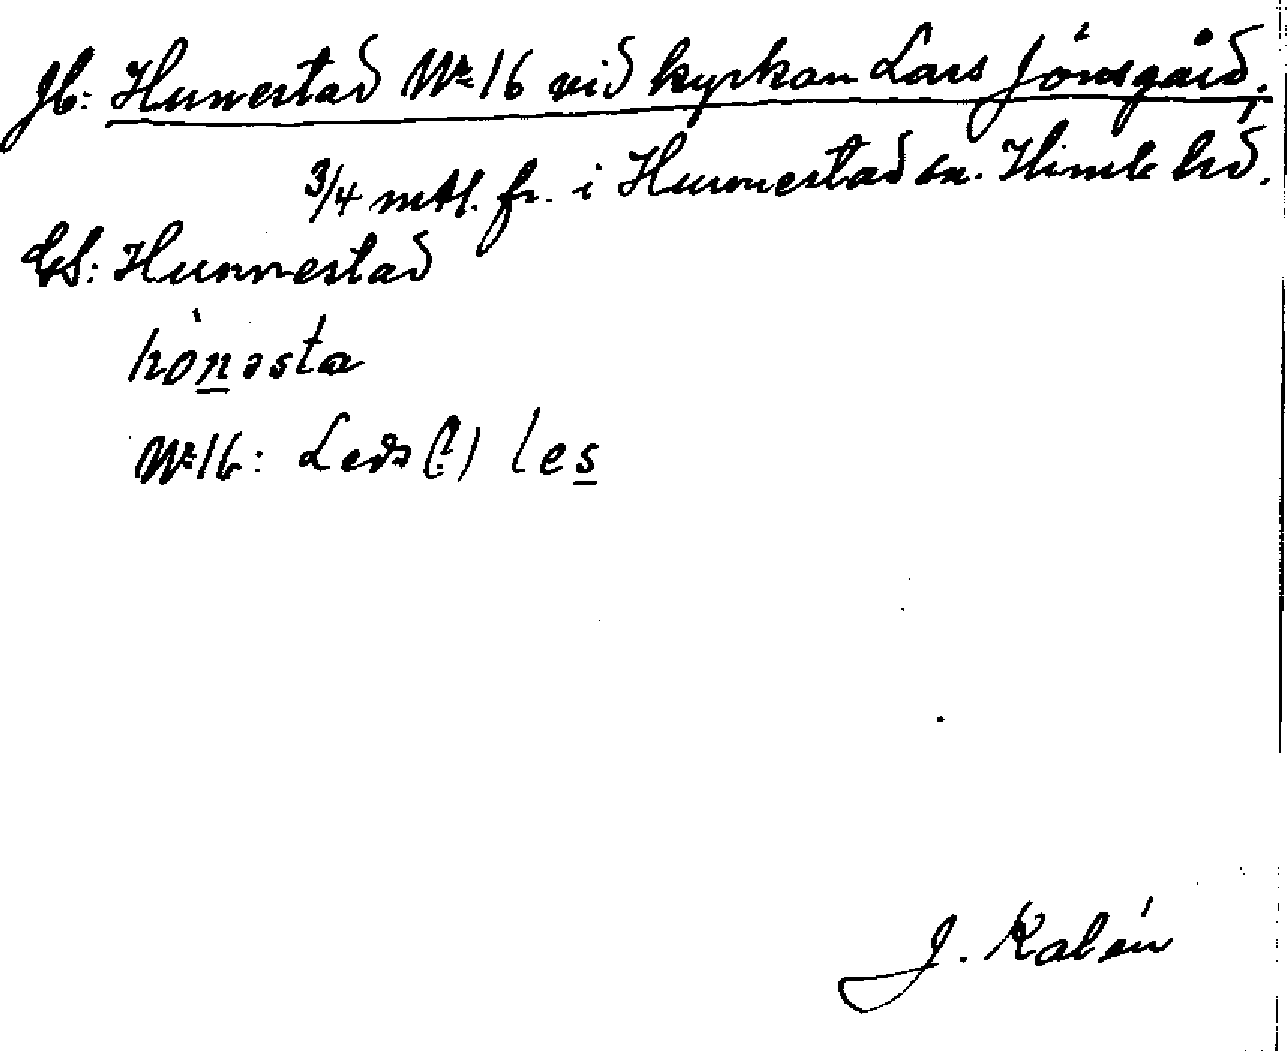 Jb: Hunnestad Nr 16 vid kyrkan Lars Jönsgård.
3/4 mtl. fr. i Hunnestad sn. Himle hd.
GS: Hunnestad
hònəsta
Nr 16: Leds (?) les
J. Kalén